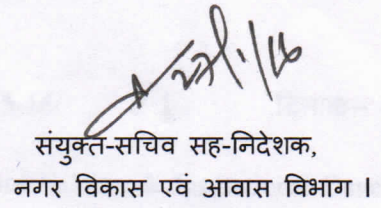 27/1/16
संयुक्त-सचिव सह-निदेशक,
नगर विकास एवं आवास विभाग ।